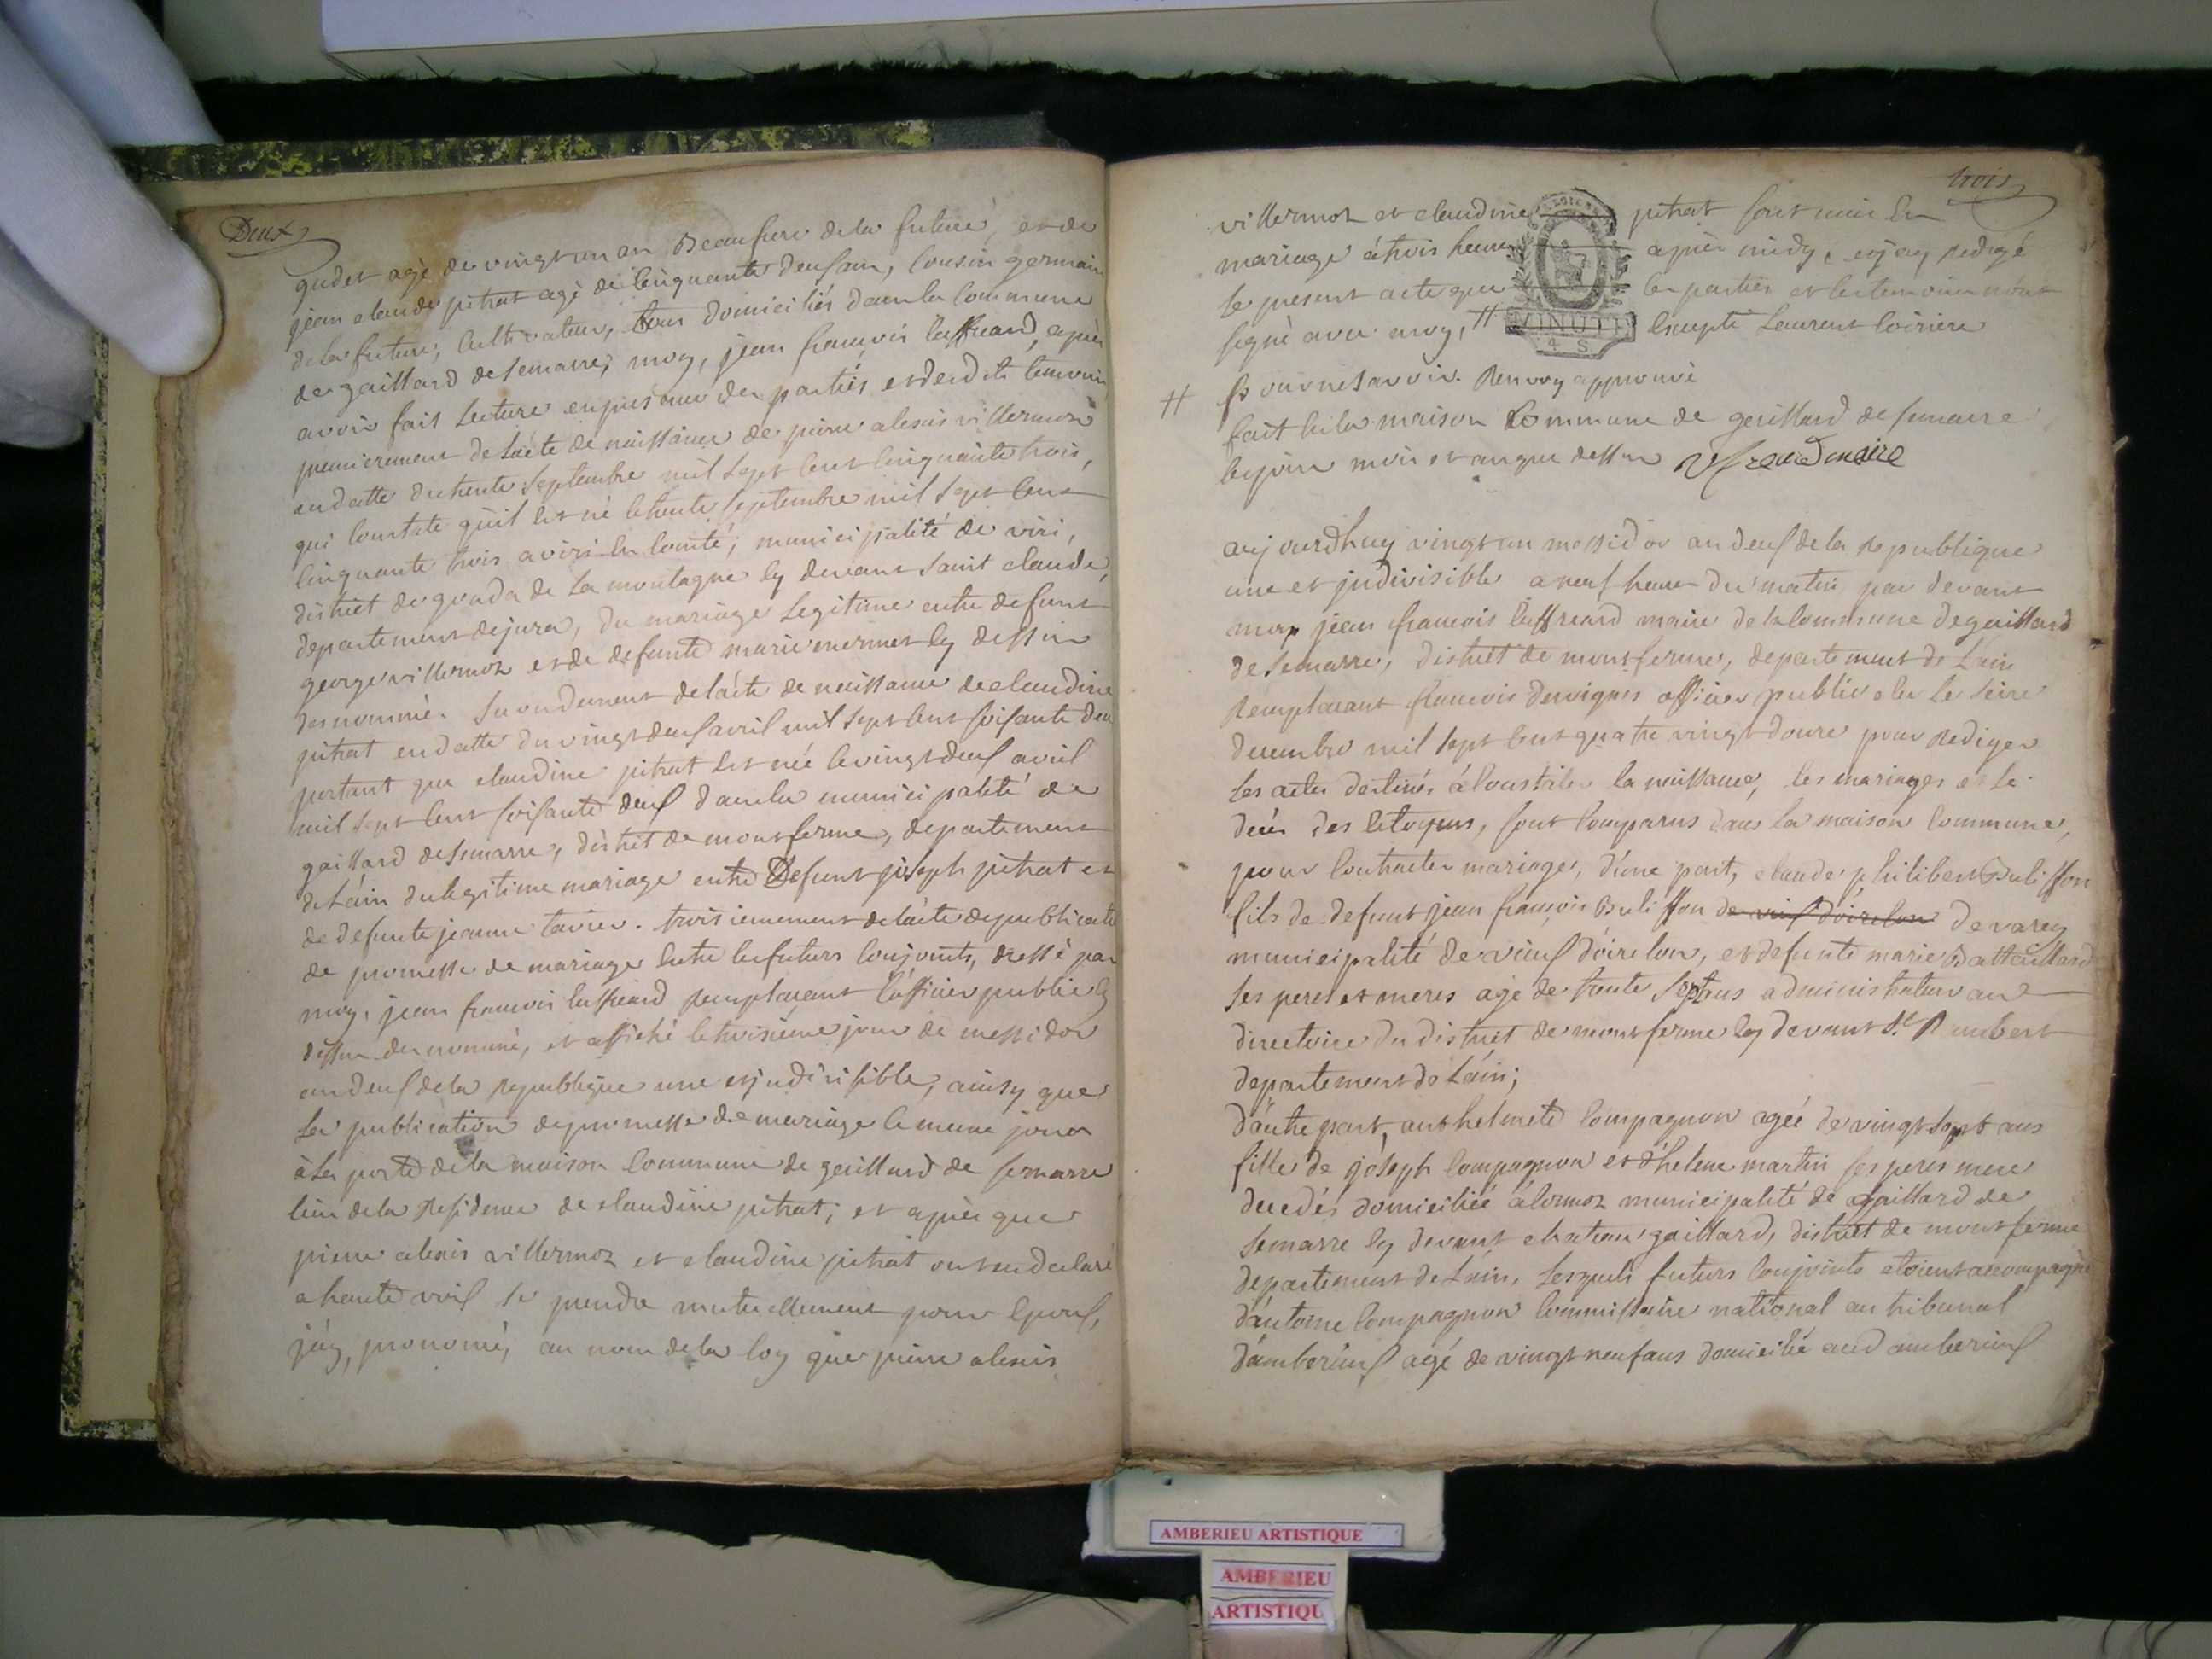 Deux
gudet agé de vingt un an Beaufrere de la future, et de
jean claude pitrat agé de cinquante deux ans, cousin germain
de la future, cultivateur, tous domiciliés dans la commune
de gaillard de semarre, moy, jean francois après
avoir fait lecture en presence des parties et desdits temoins
premierement de l'acte de naissance de pierre alexis villermoz
en datte du trente septembre mil sept cent cinquante trois,
qui constate qu'il est né le trente septembre mil sept cent
cinquante trois a viri en comté, municipalité de viri,
district de de la montagne cy devant saint claude,
departement de jura, du mariage legitime entre defunt
george villermoz et de defunte marie mermet cy dessus
denommé. secondement de l'acte de naissance de claudine
pitrat en datte du vingt deux avril mil sept cent soixante deux
portant que claudine pitrat est née le vingt deux avril
mil sept cent soixante deux dans la municipalité de
gaillard de semarre, district de montferme, departement
de l'ain du legitime mariage entre Defunt joseph pitrat et
de defunte jeanne tavier. troisiemement de l'acte de publication
de promesse de mariage entre les futurs conjoints, dressé par
moy, jean francois remplacant l'officier public cy
dessus denommé, et affiché le troisieme jour de messidor
an deux de la republique une et indivisible, ainsy que
la publication de promesse de mariage le meme jour
à la porte de la maison commune de gaillard de semarre
lieu de la residence de claudine pitrat; et après que
pierre alexis villermoz et claudine pitrat ont eu declaré
a haute voix se prendre mutuellement pour epoux,
j'ay, prononcé, au nom de la loy que pierre alexis
trois
villermoz et claudine pitrat sont unis en
mariage à trois heures après midy, et j'ay redigé
le present acte que les parties et les temoins n'ont
signé avec moy, # excepté Laurent
MINUTE
4 S
# pour ne savoir. Renvoy approuvé
fait en la maison commune de gaillard de semarre
les jour mois et an que dessus maire
aujourdhuy vingt un messidor an deux de la republique
une et indivisible a neuf heures du matin par devant
moy jean francois maire de la commune de gaillard
de semarre, district de montferme, departement de l'ain
remplacant francois officier public elu le seize
decembre mil sept cent quatre vingt douze pour rediger
les actes destinés à constater la naissance, les mariages et le
decès des citoyens, sont comparus dans la maison commune,
pour contracter mariage, d'une part, claude philibert Buliffon
fils de defunt jean francois Buliffon de vieux d'oirelon de varey
municipalité de vieux d'oirelon, et defunte marie Battaillard
ses peres et meres agé de trente sept ans administrateur au
directoire du district de montferme cy devant St Rambert
departement de l'ain;
d'autre part, anthelmete compagnon agée de vingt sept ans
fille de joseph compagnon et d'helene martin ses peres mere
decedés domiciliée à cormoz municipalité de gaillard de
semarre cy devant chateau gaillard, district de montferme
departement de l'ain, lesquels futurs conjoints etoient accompagné
d'antoine compagnon commissaire national au tribunal
d'amberieux agé de vingt neuf ans domicilié aud amberieux
AMBERIEU ARTISTIQUE
AMBERIEU
ARTISTIQU